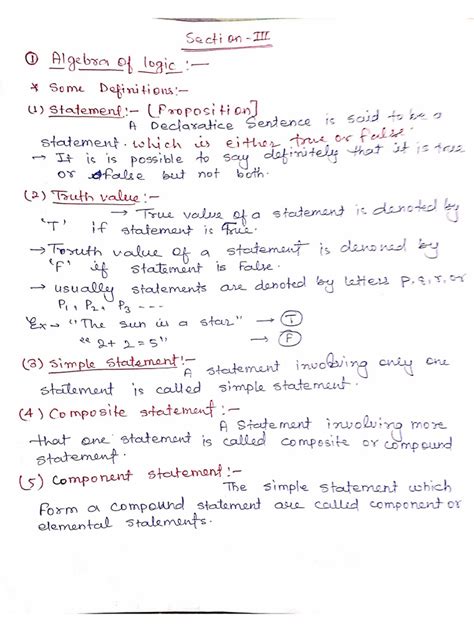 Section - III
① Algebra of logic :—
* Some Definitions :-
(1) Statement :- [Proposition]
A Declaratice Sentence is said to be a
statement. which is either true or false.
→ It is is possible to say definitely that it is true
or false but not both.
(2) Truth value :-
→ True value of a statement is denoted by
'T' if statement is True.
→ Toruth value of a statement is denoned by
'F' if statement is False.
→ usually statements are denoted by letters p, q, r, or
P₁, P₂, P₃ ---
Ex → "The sun is a star" → Ⓣ
"2+2=5" → Ⓕ
(3) Simple statement :-
A statement involving only one
statement is called simple statement.
(4) Composite statement :-
A Statement involving more
that one statement is called composite or compound
statement.
(5) Component statement :-
The simple statement which
form a compound statement are called component or
elemental statements.